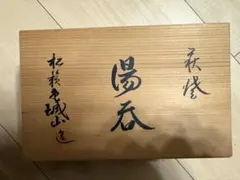 萩焼
湯呑
松緑玉城山造